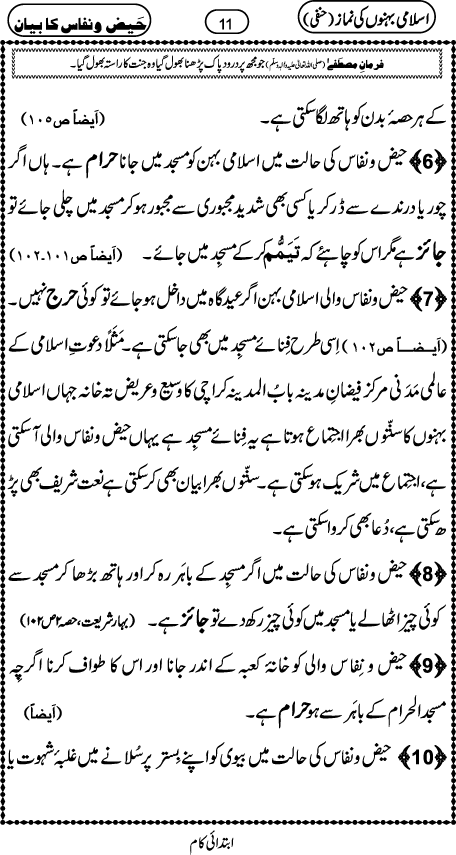 اسلامی بہنوں کی نماز (حنفی) 11 حَیض ونِفاس کا بیان
فرمانِ مصطَفٰے (صلی اللہ تعالیٰ علیہ والہ وسلم) جو مجھ پر درود پاک پڑھنا بھول گیا وہ جنت کا راستہ بھول گیا۔
کے ہر حصۂ بدن کو ہاتھ لگا سکتی ہے۔ (اَیضاً ص ۱۰۵)
﴿6﴾ حیض ونفاس کی حالت میں اسلامی بہن کو مسجد میں جانا حرام ہے۔ ہاں اگر
چور یا درندے سے ڈر کر یا کسی بھی شدید مجبوری سے مجبور ہو کر مسجد میں چلی جائے تو
جائز ہے مگر اس کو چاہئے کہ تَیَمُّم کر کے مسجِد میں جائے۔ (اَیضاً ص۱۰۱۔۱۰۲)
﴿7﴾ حیض ونفاس والی اسلامی بہن اگر عیدگاہ میں داخل ہو جائے تو کوئی حرج نہیں۔
(اَیضاً ص۱۰۲) اِسی طرح فِنائے مسجِد میں بھی جا سکتی ہے۔ مَثَلاً دعوتِ اسلامی کے
عالمی مَدَنی مرکز فیضانِ مدینہ بابُ المدینہ کراچی کا وسیع و عریض تہ خانہ جہاں اسلامی
بہنوں کا سنّتوں بھرا اجتِماع ہوتا ہے یہ فِنائے مسجِد ہے یہاں حیض ونفاس والی آ سکتی
ہے، اجتِماع میں شریک ہو سکتی ہے۔ سنّتوں بھرا بیان بھی کر سکتی ہے نعت شریف بھی پڑ
ھ سکتی ہے، دُعا بھی کروا سکتی ہے۔
﴿8﴾ حیض ونفاس کی حالت میں اگر مسجد کے باہَر رہ کر اور ہاتھ بڑھا کر مسجد سے
کوئی چیز اٹھا لے یا مسجد میں کوئی چیز رکھ دے تو جائز ہے۔ (بہارِ شریعت، حصہ ۲ ص ۱۰۲)
﴿9﴾ حیض و نِفاس والی کو خانۂ کعبہ کے اندر جانا اور اس کا طواف کرنا اگرچِہ
مسجدُ الحرام کے باہَر سے ہو حرام ہے۔ (اَیضاً)
﴿10﴾ حیض ونفاس کی حالت میں بیوی کو اپنے بِستر پر سُلانے میں غلبۂ شہوت یا
ابتدائی کام